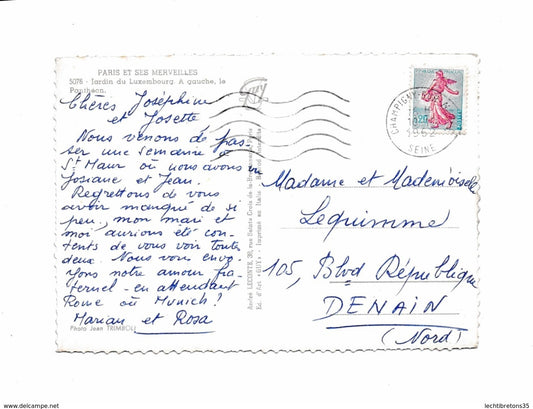 PARIS ET SES MERVEILLES
5078 - Jardin du Luxembourg. A gauche, le
Panthéon.
Chères Joséphine
et Josette
Nous venons de pas-
ser une semaine à
St Maur où nous avons vu
Josiane et Jean.
Regrettons de vous
avoir manqué de si
peu, mon mari et
moi, aurions été con-
tents de vous voir toutes
deux. Nous vous envo-
yons notre amour fra-
ternel - en attendant
Rome où Munich!
Marian et Rosa
Photo Jean TRIMBOLI
André LECONTE, 38, rue Sainte Croix de la
Ed. d'Art «GUY» - Imprimé en Italie
GUY
CHAMPIGNY-SUR
SEINE
0,20
Madame et Mademoiselle
Lequimme
105, Blvd République
DENAIN
(Nord)
www.delcampe.net
lechtibretons35